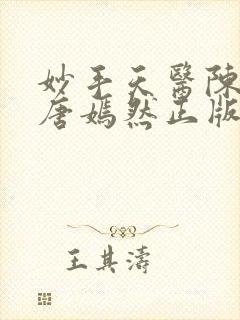 妙手天醫陳
唐嫣然正版
王其濤